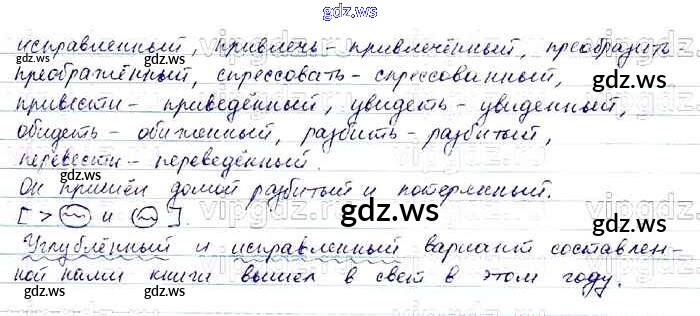 gdz.ws
исправленный, привлечь - привлечённый, преобразить
преображённый, спрессовать - спрессованный,
привести - приведённый, увидеть - увиденный,
обидеть - обиженный, разбить - разбитый,
перевести - переведённый.
Он пришёл домой разбитый и потерянный.
[ > и ].
gdz.ws
Углублённый и исправленный вариант составлен-
ной нами книги вышел в свет в этом году.
gdz.ws
gdz.ws
gdz.ws